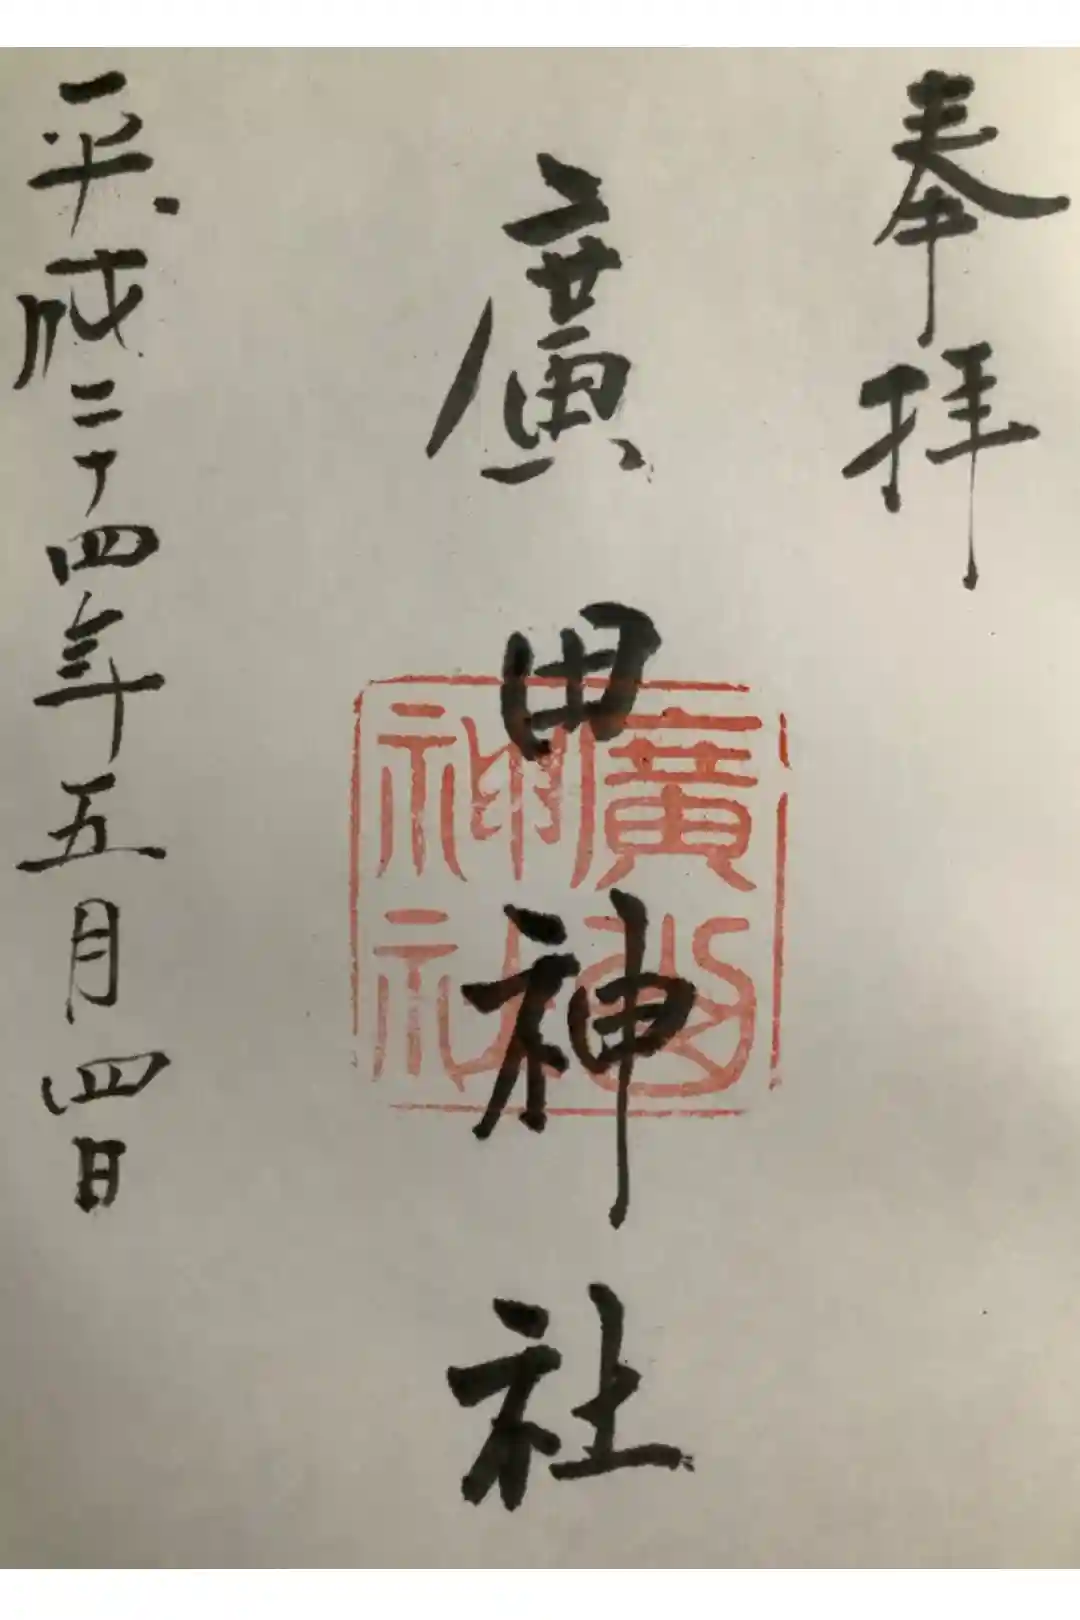 奉拝
廣田神社
平成二十四年五月四日